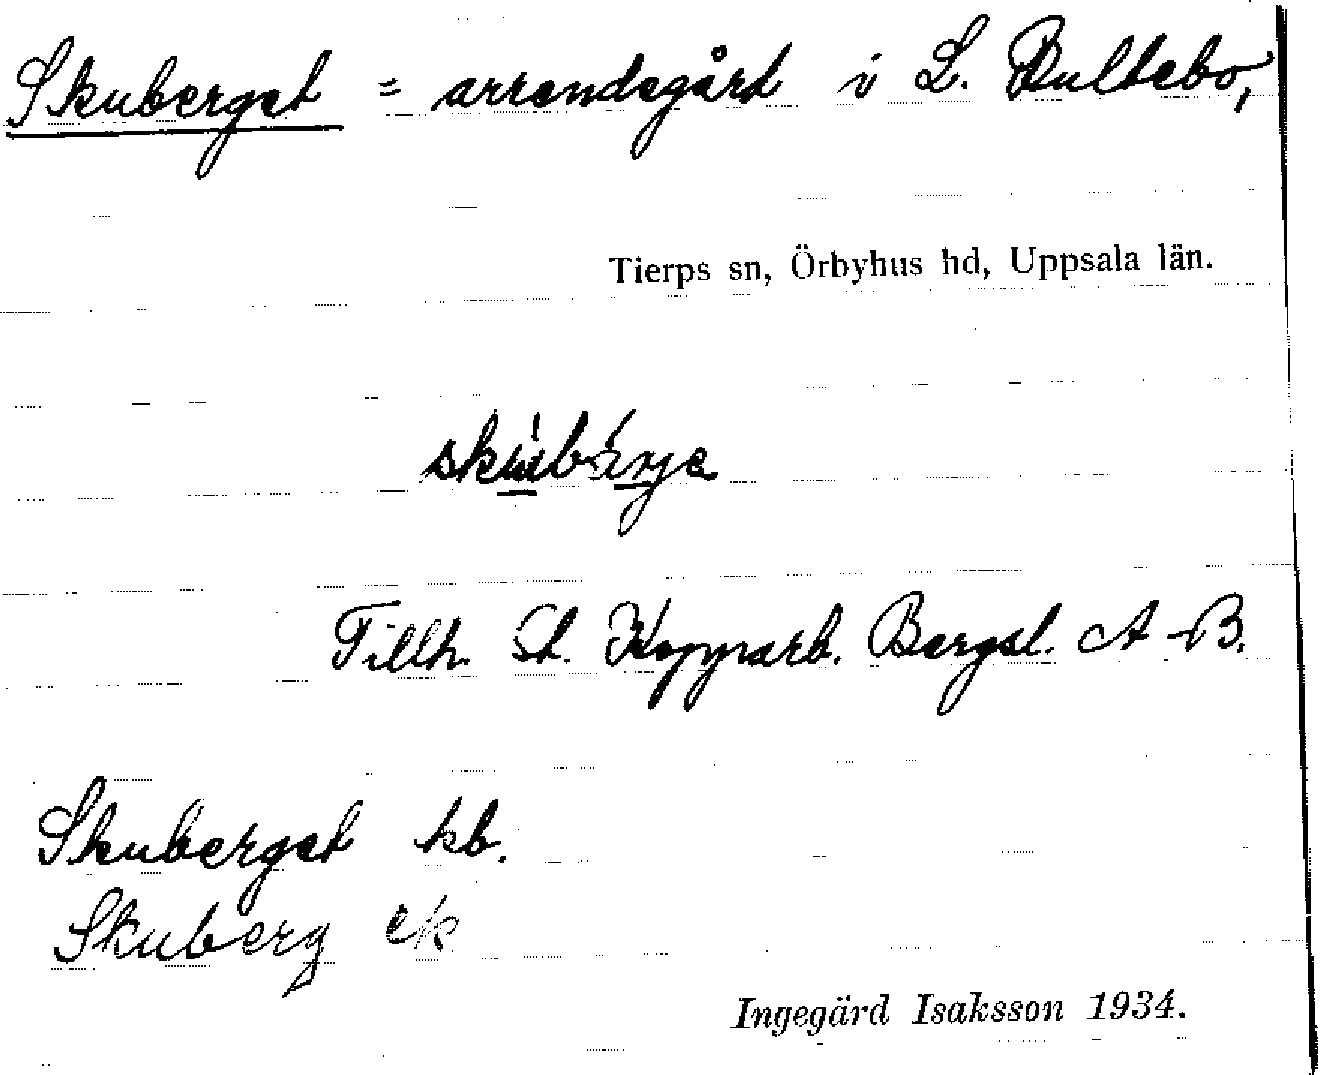 Skuberget = arrendegård i L. Bultebo,
Tierps sn, Örbyhus hd, Uppsala län.
Tillh. St. Kopparb. Bergsl. A-B.
Skuberget kb.
Skuberg ek
Ingegärd Isaksson 1934.